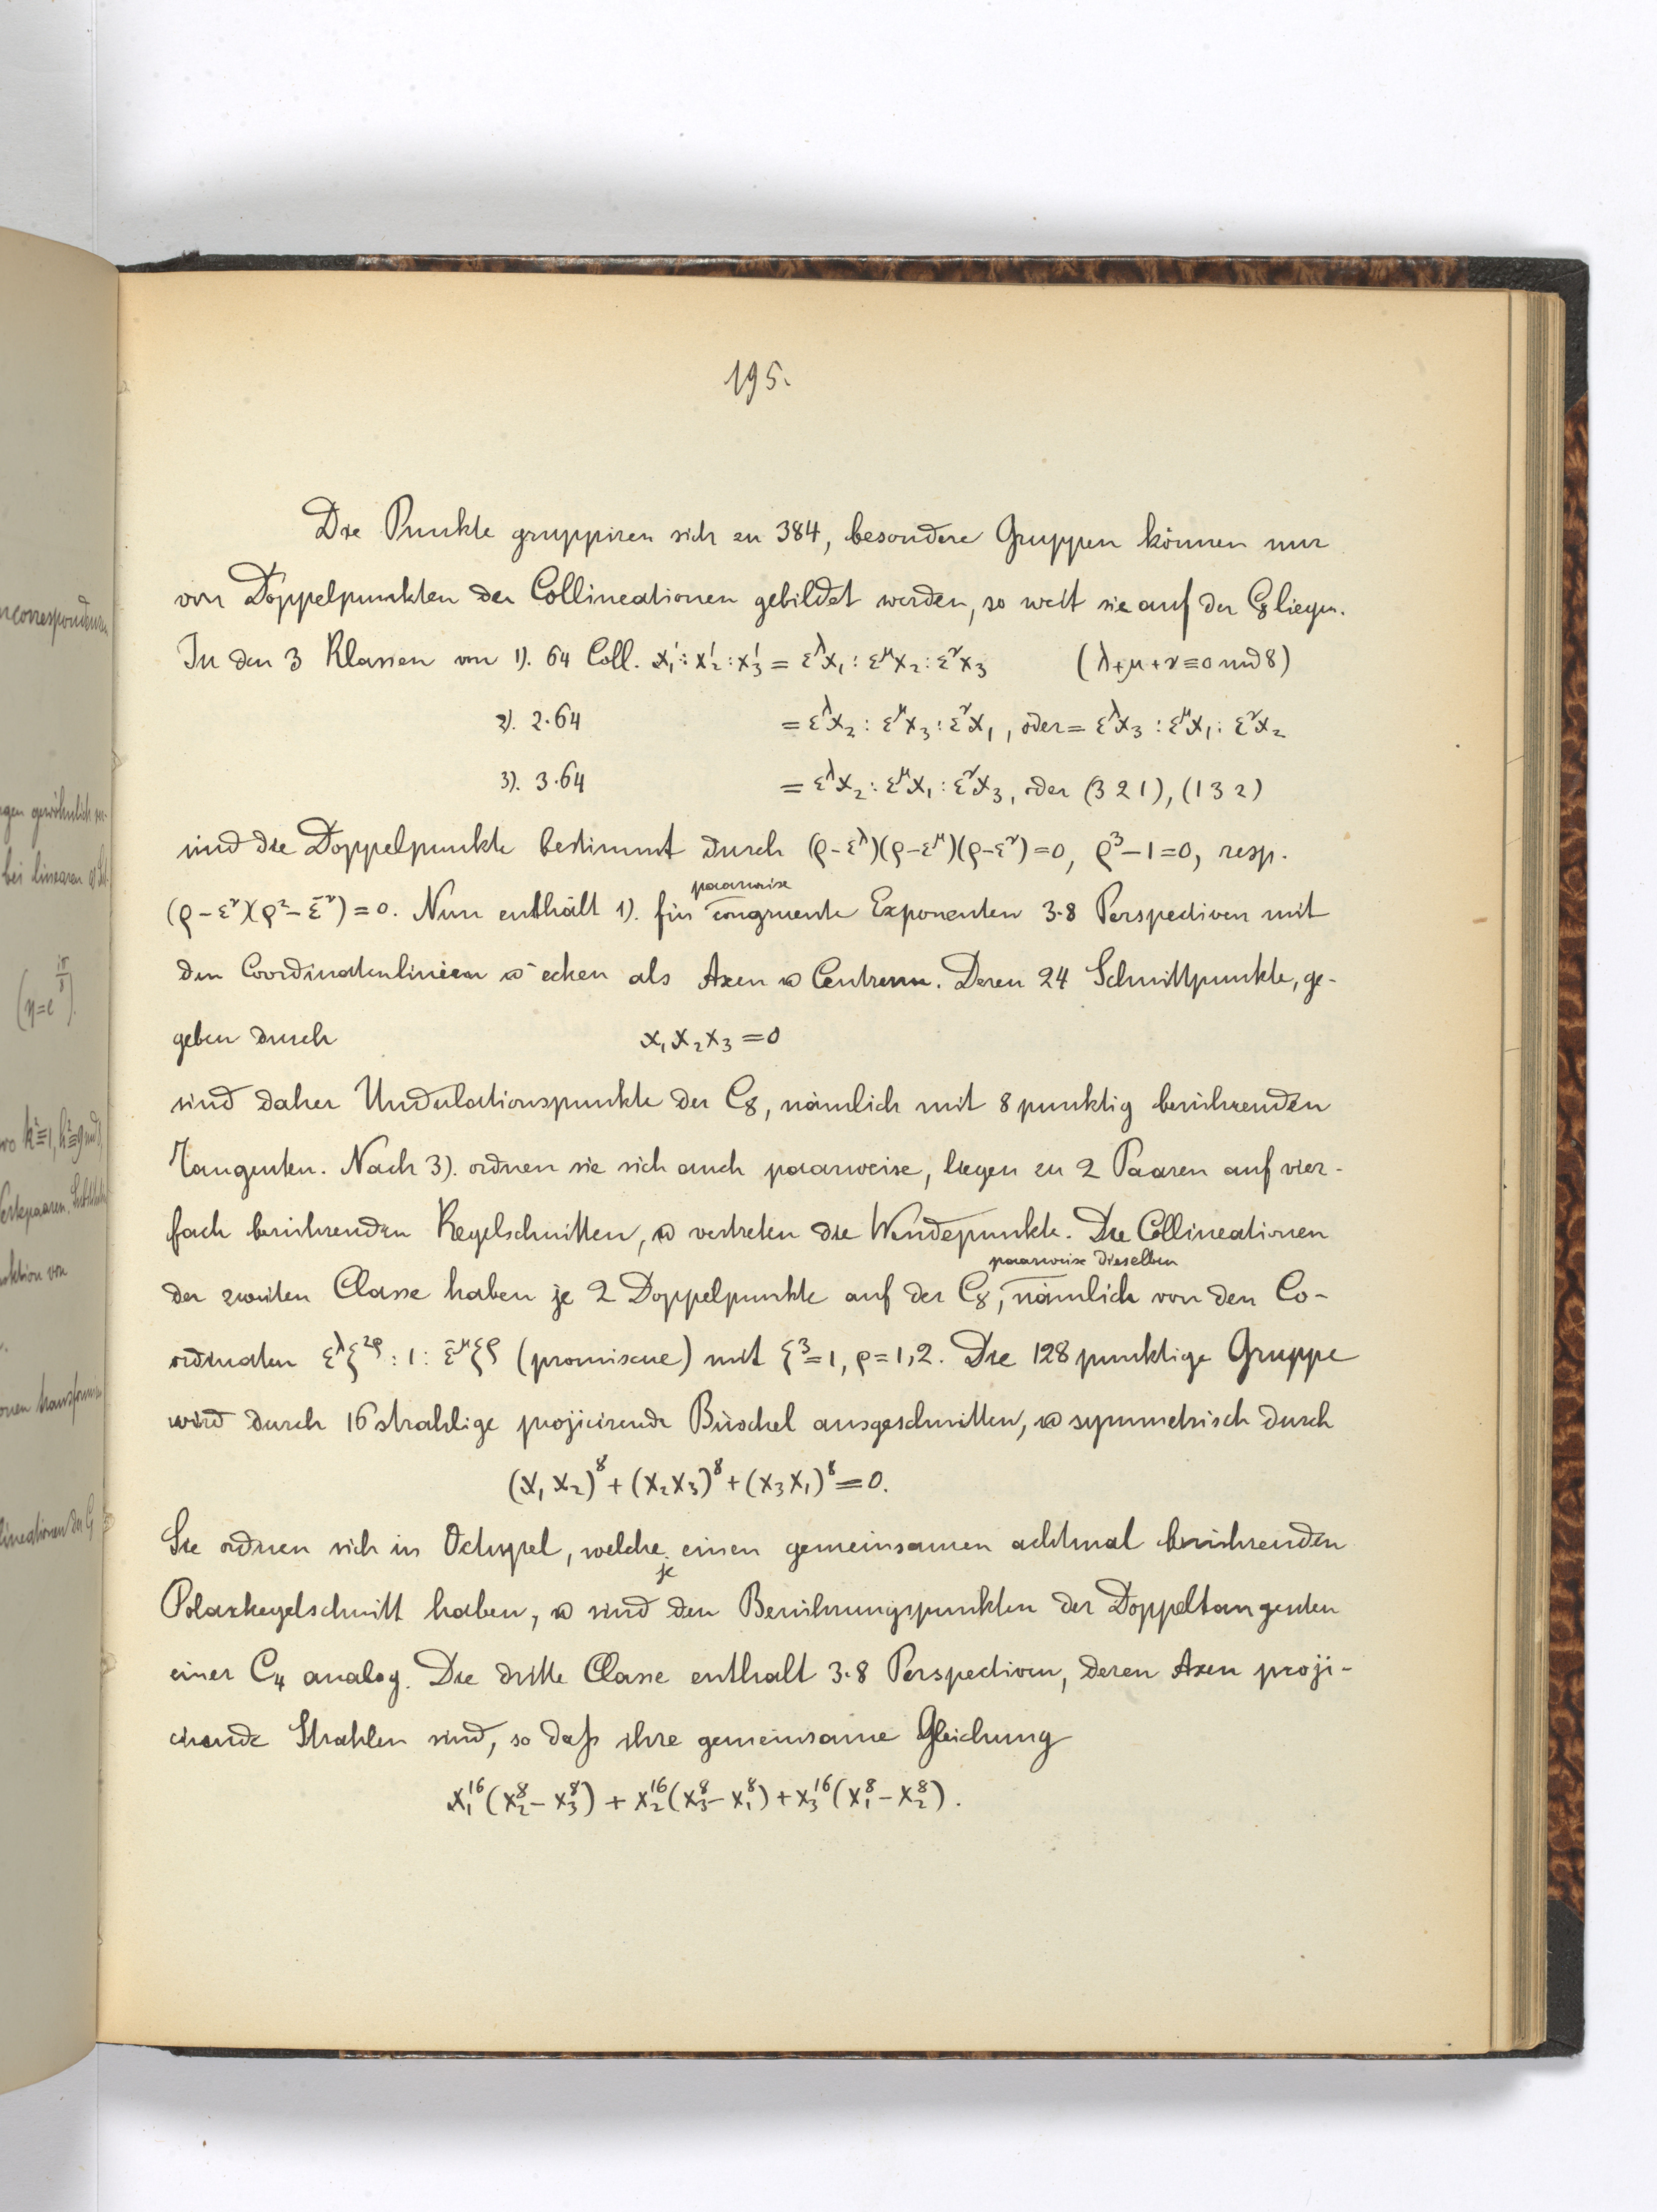 195.
Die Punkte gruppiren sich zu 384, besondere Gruppen können nur
von Doppelpunkten der Collineationen gebildet werden, so weit sie auf der C₈ liegen.
In den 3 Klassen von 1). 64 Coll. x₁' : x₂' : x₃' = ε^λx₁ : ε^μx₂ : ε^νx₃ (λ+μ+ν≡0 mod 8)
2). 2·64 = ε^λx₂ : ε^μx₃ : ε^νx₁, oder = ε^λx₃ : ε^μx₁ : ε^νx₂
3). 3·64 = ε^λx₂ : ε^μx₁ : ε^νx₃, oder (3 2 1), (1 3 2)
sind die Doppelpunkte bestimmt durch (ρ-ε^λ)(ρ-ε^μ)(ρ-ε^ν)=0, ρ³-1=0, resp.
(ρ-ε^ν)(ρ²-ε^-ν)=0. Nun enthält 1). für paarweise congruente Exponenten 3·8 Perspectiven mit
den Coordinatenlinien u -ecken als Axen u Centren. Deren 24 Schnittpunkte, ge-
geben durch x₁x₂x₃=0
sind daher Undulationspunkte der C₈, nämlich mit 8 punktig berührenden
Tangenten. Nach 3). ordnen sie sich auch paarweise, liegen zu 2 Paaren auf vier-
fach berührenden Kegelschnitten, u vertreten die Wendepunkte. Die Collineationen
der zweiten Classe haben je 2 Doppelpunkte auf der C₈, paarweise dieselben nämlich von den Co-
ordinaten ε^λξ^2ρ : 1 : ε^-μξ^ρ (promiscue) mit ξ³=1, ρ=1,2. Die 128 punktige Gruppe
wird durch 16 strahlige projicirende Büschel ausgeschnitten, u symmetrisch durch
(x₁x₂)⁸+(x₂x₃)⁸+(x₃x₁)⁸=0.
Sie ordnen sich in Octupel, welche je einen gemeinsamen achtmal berührenden
Polarkegelschnitt haben, u sind den Berührungspunkten der Doppeltangenten
einer C₄ analog. Die dritte Classe enthalt 3·8 Perspectiven, deren Axen proji-
cirende Strahlen sind, so daß ihre gemeinsame Gleichung
x₁¹⁶(x₂⁸-x₃⁸)+x₂¹⁶(x₃⁸-x₁⁸)+x₃¹⁶(x₁⁸-x₂⁸).